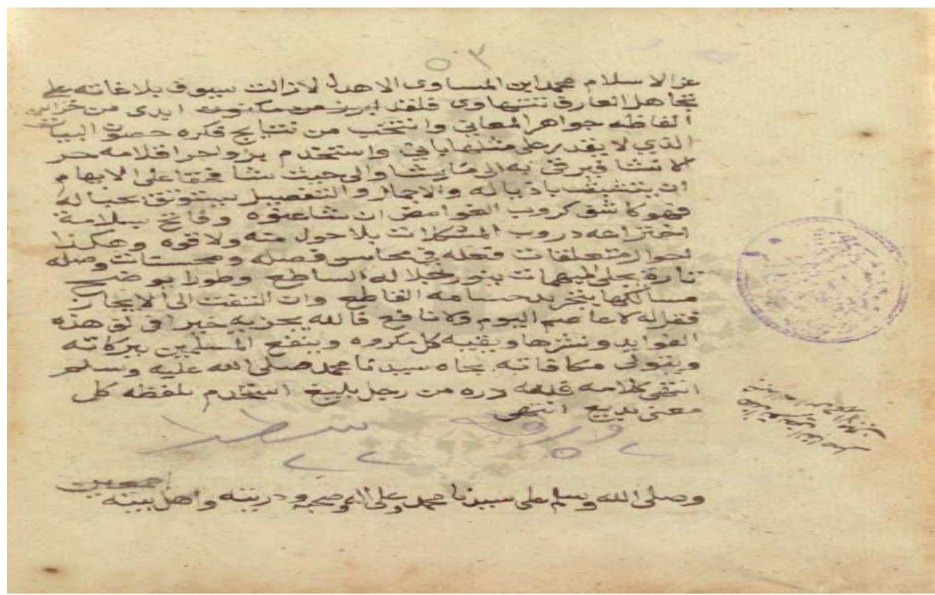 ٥٣
عز الاسلام محمد ابن المساوى الاهدل لازالت سيوف بلاغاته على
تجاهل العارف تنتهاوى فلقد ابرز من مكنون ايدى من خزاين
الفاظه جواهر المعانى وانتخب من نتايج فكره حصون البيان
الذي لا يقدر على مثلها بانى واستخدم بزواجر اقلامه حر
الانشا فيرقى به الى ما يشا والى حيث شا فتفا على الابهام
ان يتشبث باذياله والاجمال والتفصيل يستوثق بحباله
فهو كاشف كروب الغوامض ان شاعنوه وفاتح بسلامة
اختراعه دروب المشكلات بلا حول منه ولا قوه وهكذا
احوال متعلقات فعله فى محاسن فصله ومحسنات وصله
تارة يجلى المبهمات بنور جلاله الساطع وطورا يوضح
مسالكها بتجريد حسامه القاطع وان التفت الى الايجاز
فقل له لا عاصم اليوم ولا نافع فالله يجزيه خيرا فى لف هذه
الفوايد ونشرها ويقيه كل مكروه وينفع المسلمين ببركاته
ويتولى مكافاته بجاه سيدنا محمد صلى الله عليه وسلم
انتهى كلامه فلله دره من رجل بليغ استخدم بلفظه كل
معنى بديع انتهى
سطر
٢٢
وصلى الله وسلم على سيدنا محمد وعلى اله وصحبه وذريته واهل بيته
اجمعين